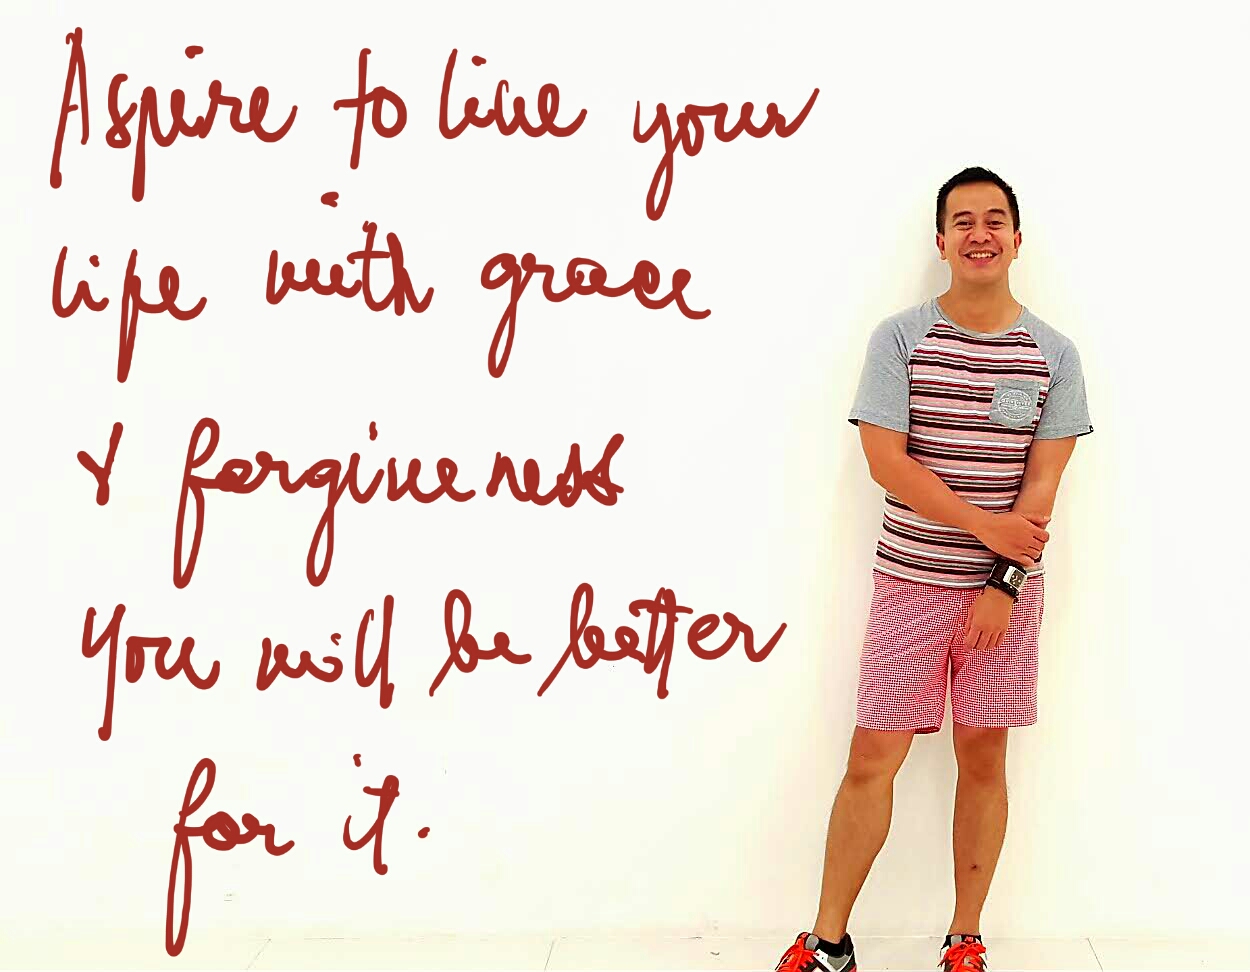 Aspire to live your
life with grace
& forgiveness
You will be better
for it.